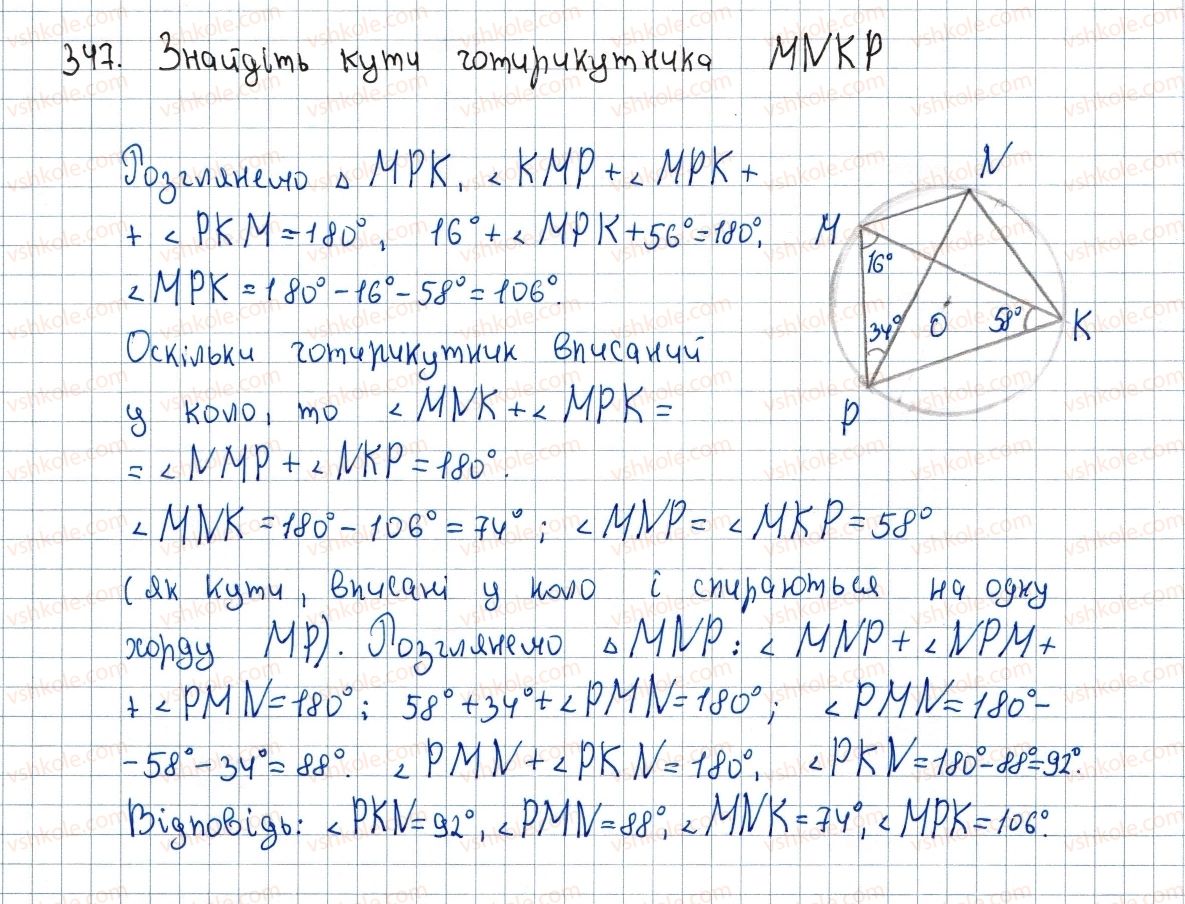 347. Знайдіть кути чотирикутника MNKP
Розглянемо △ MPK, ∠KMP + ∠MPK +
+ ∠PKM = 180°, 16° + ∠MPK + 56° = 180°,
∠MPK = 180° - 16° - 58° = 106°.
Оскільки чотирикутник вписаний
у коло, то ∠MNK + ∠MPK =
= ∠NMP + ∠NKP = 180°.
∠MNK = 180° - 106° = 74°; ∠MNP = ∠MKP = 58°
(як кути, вписані у коло і спираються на одну
хорду MP). Розглянемо △MNP: ∠MNP + ∠NPM +
+ ∠PMN = 180°; 58° + 34° + ∠PMN = 180°; ∠PMN = 180° -
- 58° - 34° = 88°. ∠PMN + ∠PKN = 180°, ∠PKN = 180° - 88° = 92°.
Відповідь: ∠PKN = 92°, ∠PMN = 88°, ∠MNK = 74°, ∠MPK = 106°.
N
M
16°
34°
O
58°
K
P
vshkole.com